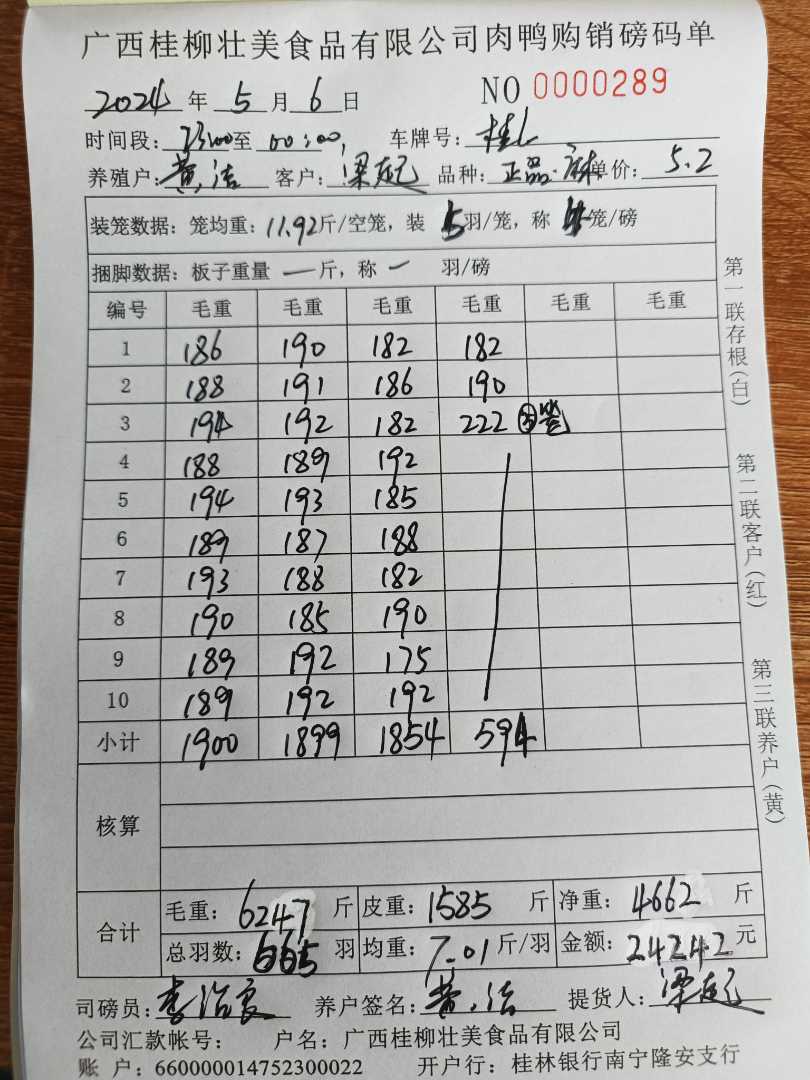 广西桂柳壮美食品有限公司肉鸭购销磅码单
2024 年 5 月 6 日 NO 0000289
时间段: 23:00 至 00:00, 车牌号: 桂
养殖户: 黄洁 客户: 梁起 品种: 正品·麻 单价: 5.2
装笼数据: 笼均重: 11.92 斤/空笼, 装 5 羽/笼, 称 笼/磅
捆脚数据: 板子重量 — 斤, 称 — 羽/磅
编号 毛重 毛重 毛重 毛重 毛重 毛重
1 186 190 182 182
2 188 191 186 190
3 194 192 182 222 笼
4 188 189 192
5 194 193 185
6 189 187 188
7 193 188 182
8 190 185 190
9 189 192 175
10 189 192 192
小计 1900 1899 1854 594
核算
合计 毛重: 6247 斤 皮重: 1585 斤 净重: 4662 斤
总羽数: 665 羽 均重: 7.01 斤/羽 金额: 24242 元
司磅员: 李治良 养户签名: 黄洁 提货人: 梁起
公司汇款帐号: 户名: 广西桂柳壮美食品有限公司
账 户: 660000014752300022 开户行: 桂林银行南宁隆安支行
第一联存根(白)
第二联客户(红)
第三联养户(黄)